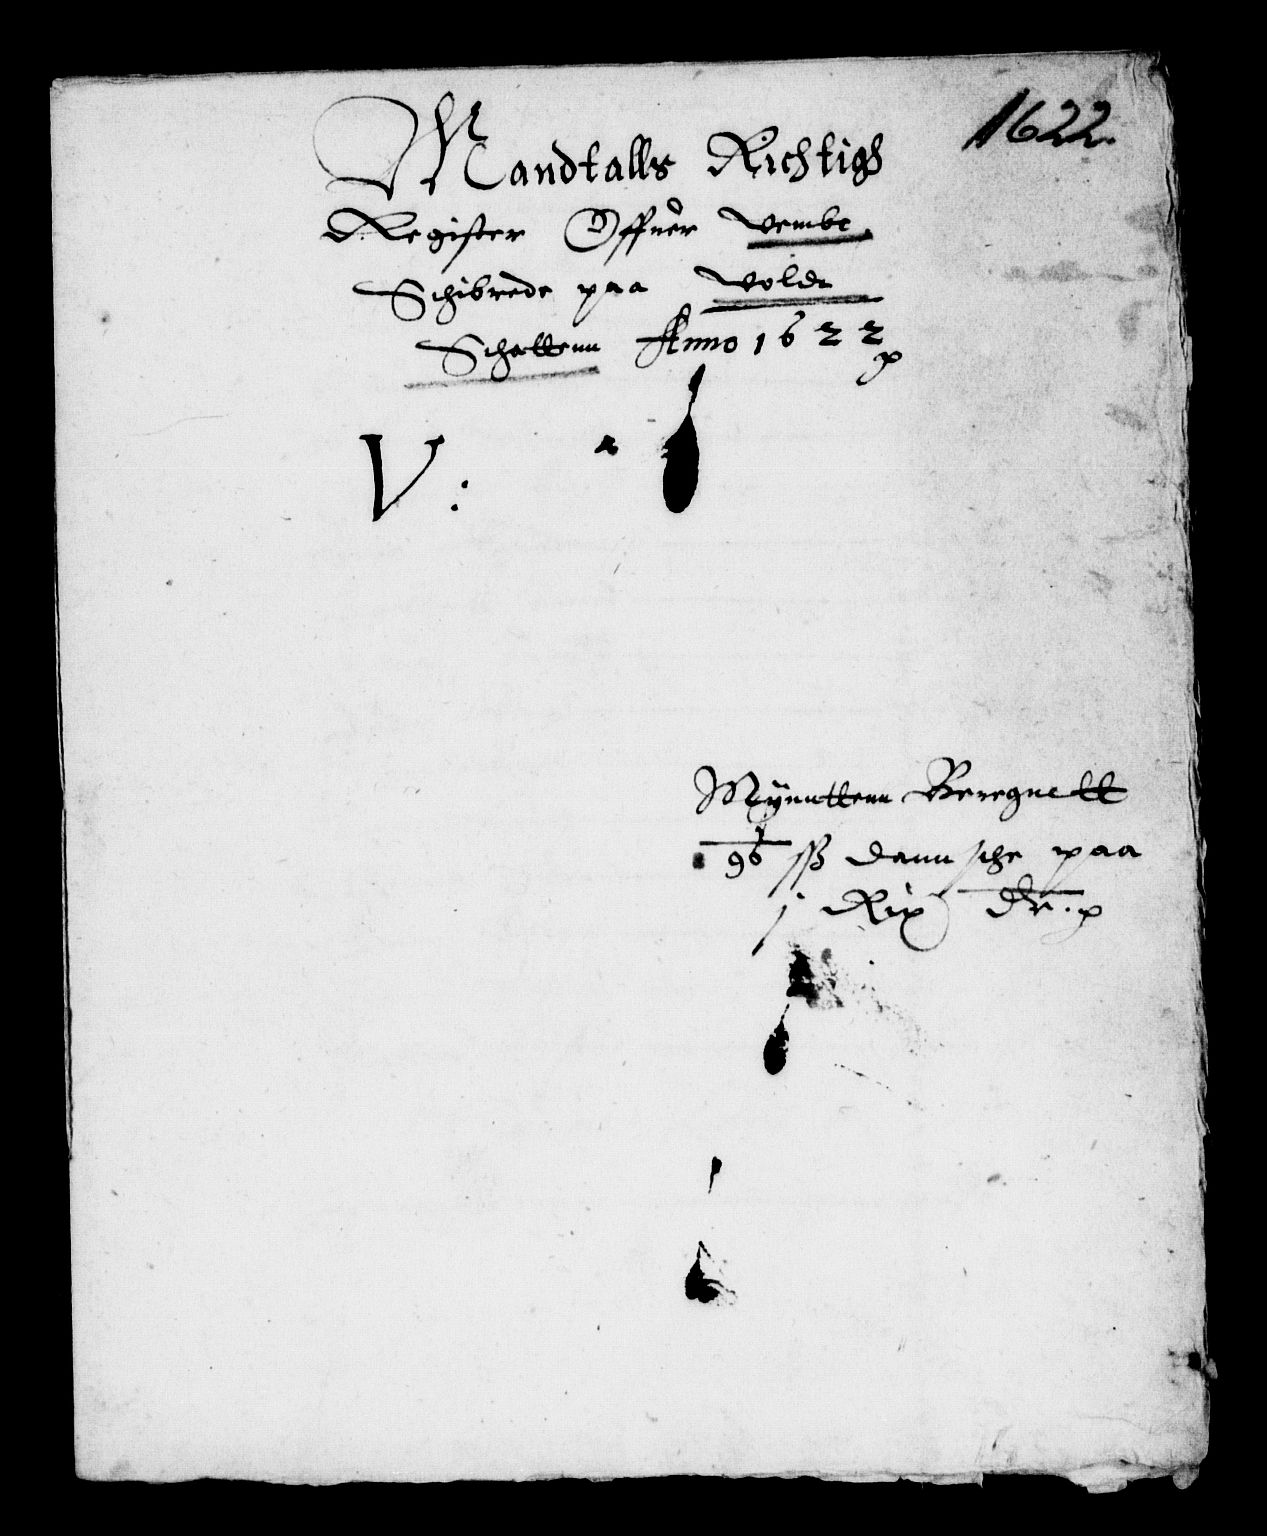 1622.
Mandtalls Richtigh
Register Offuer Vembe
Schibrede paa Volde
Schattenn Anno 1622
V:
Mÿnuttenn Beregnett
96  sß dannsche paa
j Rix dr.